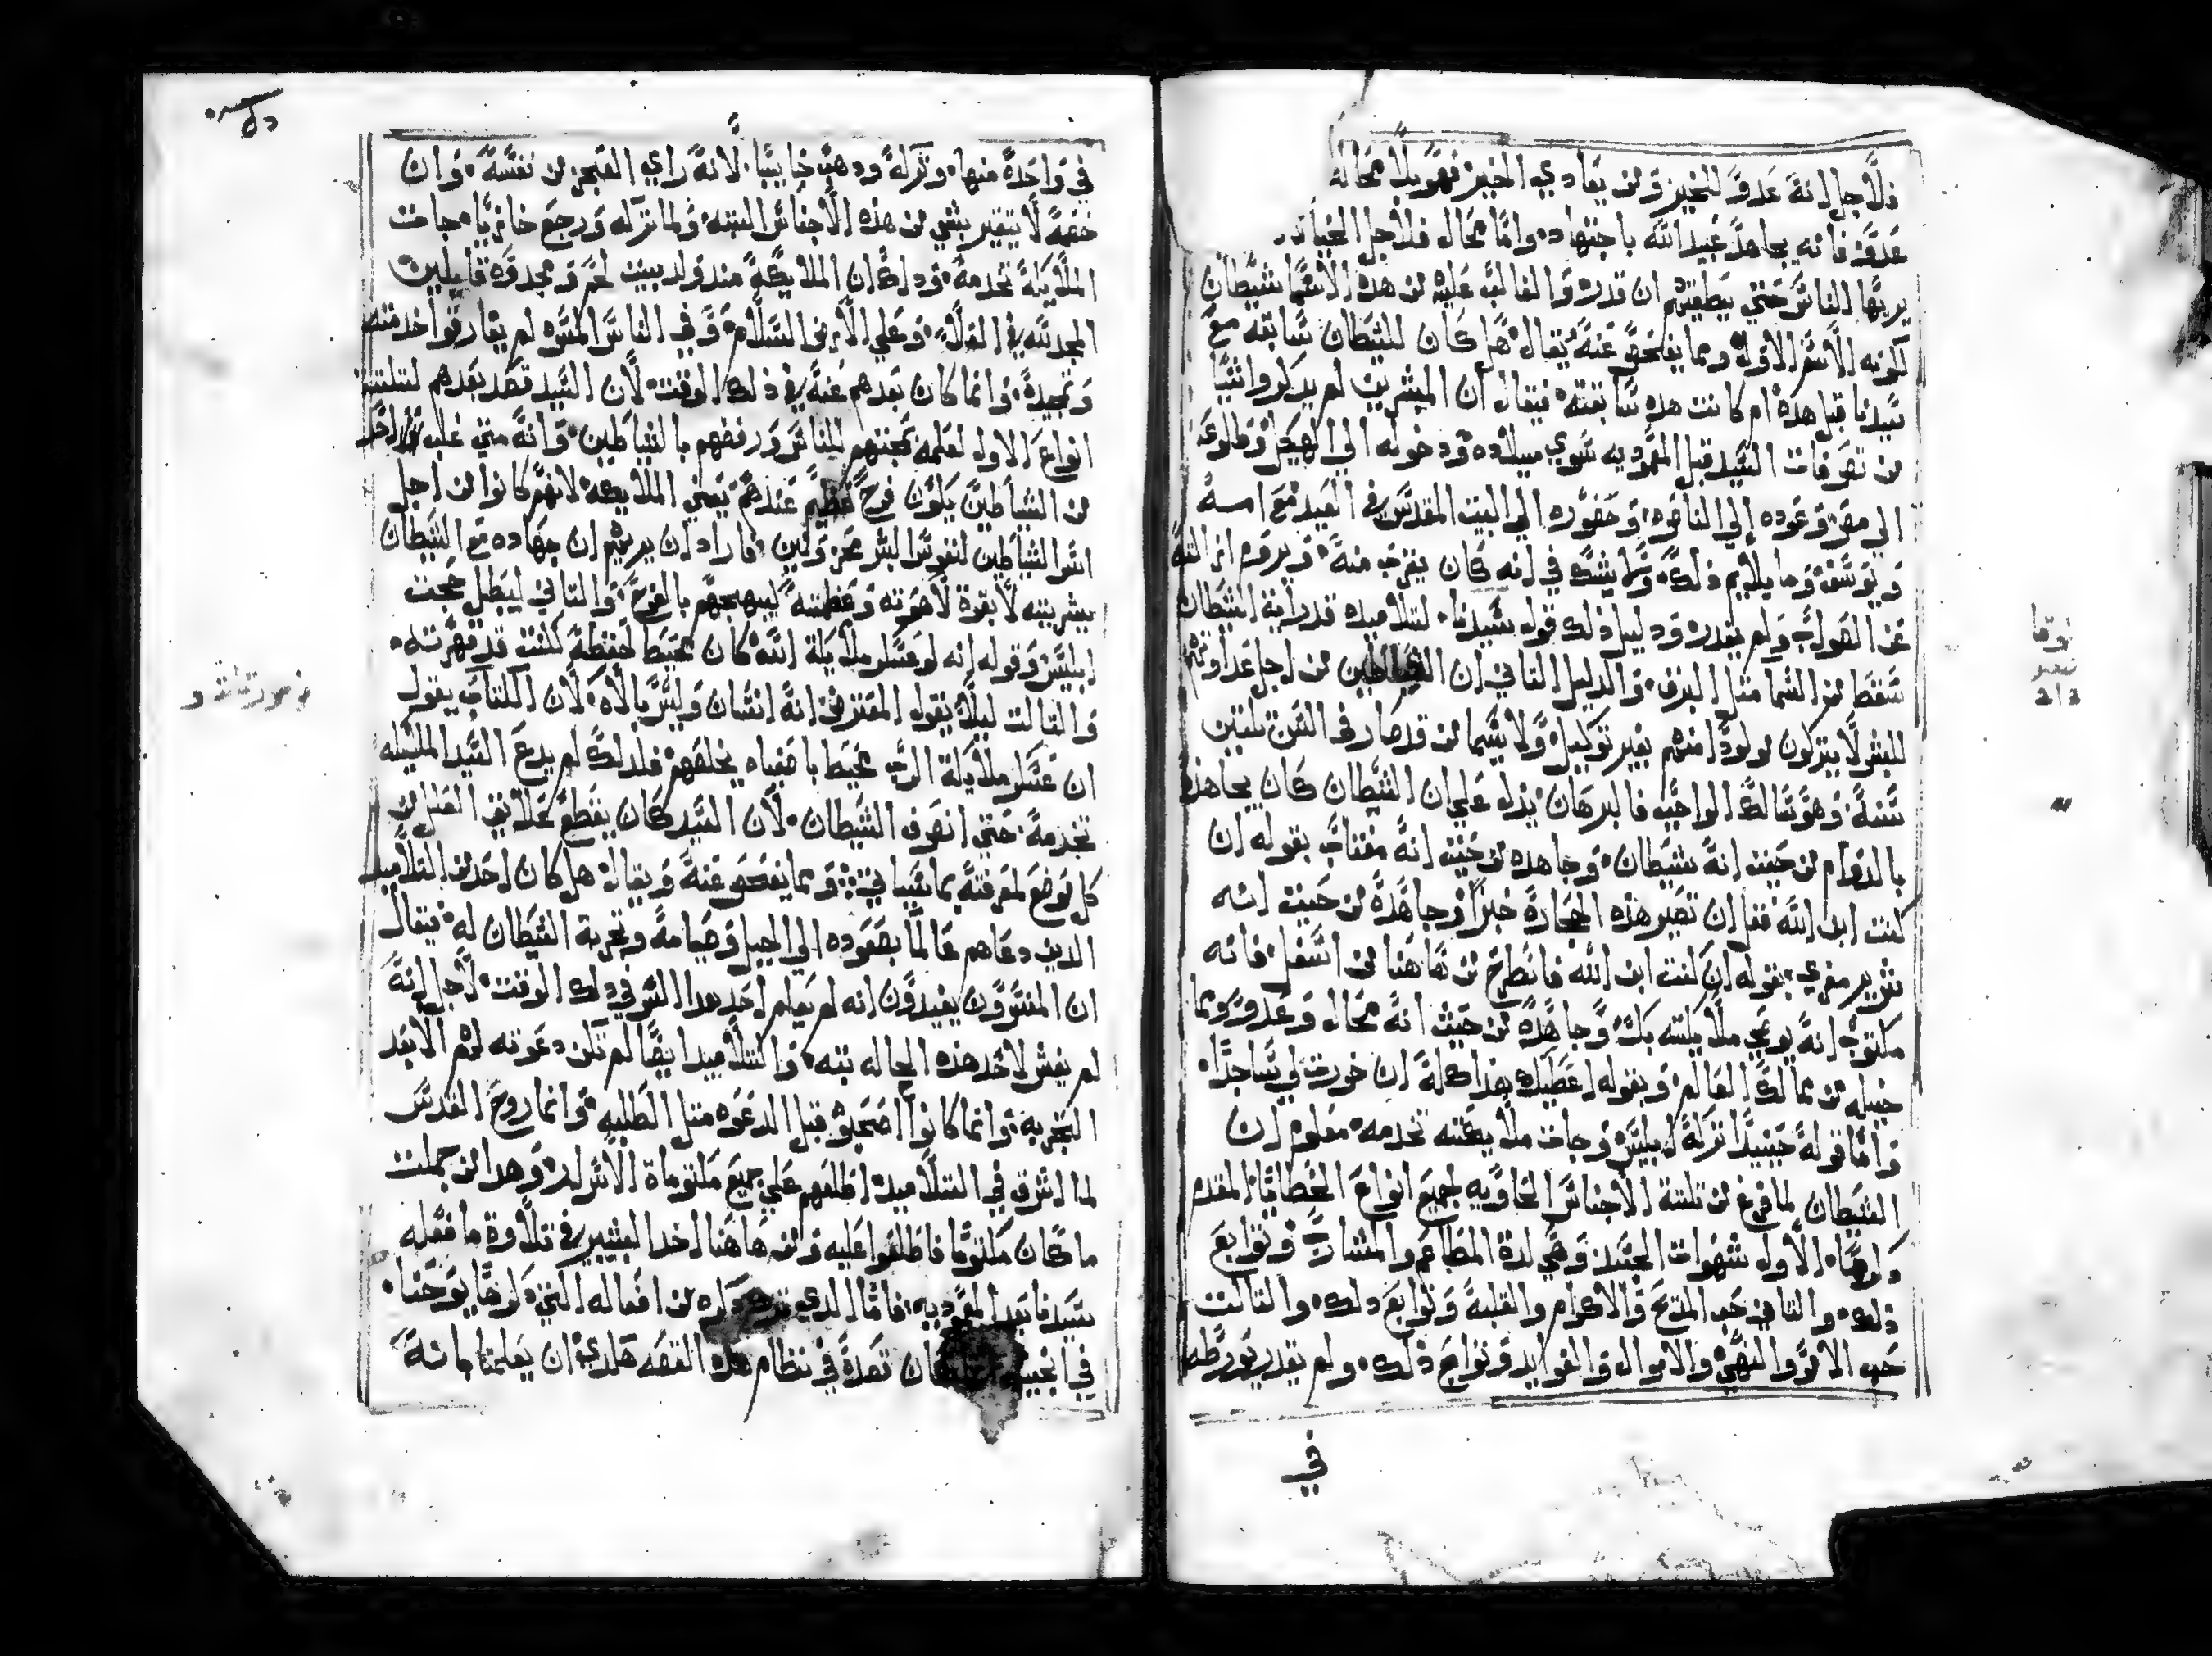 فلاجل انه عدو للخير ومن يعادي الخير فهو بلا محاله
عدو فانه يجاهد عبيد الله باجتهاد واما محال فلاجل
يربها الناس حتي يطغيهم ان قدر والغالب عليه من هذه الاسما شيطان
لكونه الاسم الاول ومما يفحص عنه يقال هل كان للشيطان سابقه مع
سيدنا قبل هذه ام كانت هذه سابقته فيقال ان المبشرين لم يذكروا شيا
من تصرفات السيد قبل المعموديه سوي ميلاده ودخوله الي الهيكل وطلوعه
الي مصر وعوده الي الناصره وحضوره الي البيت المقدس في العيد مع امه
ويوسف وما يلايم ذلك ولا يشك في انه كان يقرب منه ويروم
عن الصواب ولم يقدر ودليل ذلك قول سيدنا لتلاميده قد رايت الشيطان
سقط من السما مثل البرق والدليل الثاني ان الشياطين من اجل عداوتهم
للبشر لا يتركون مولودا منهم بغير توكيل ولا سيما من قد صار في السن تلتين
سنه وهو سالك الواجب فالبرهان يدل علي ان الشيطان كان يجاهده
بالدوام من حيت انه شيطان وجاهده من حيت انه مغتاب بقوله ان
كنت ابن الله فقل ان تصير هذه الحجاره خبزا وجاهده من حيت انه
شرير مغري بقوله ان كنت ابن الله فانطرح من هاهنا الي اسفل فانه
مكتوب انه يوصي ملايكته بك وجاهده من حيث انه محال وعدو وبما
خيله من ممالك العالم وبقوله اعطيك هذا كله ان خررت لي ساجدا
واما قوله حينيدا تركه ابليس وجات ملايكته تخدمه معلوم ان
الشيطان لما فرغ من تلتة الاجناس الحاويه جميع انواع الخطايا المقدم
دكرها الاول شهوات الجسد وهي لدة المطاعم والمشارب وتوابع
ذلك والتاني حب المدح والاكرام والغلبة وتوابع دلك والتالت
حب الامر والنهي والاموال والفوايد وتوابع ذلك ولم يقدر يورطه
في
في واحدة منها وتركه ودهب خايبا لانه راي العجز من نفسه وان
خصمه لا يتغير بشي من هذه الاجناس البته ولما تركه ورجع خازيا جات
الملايكة تخدمه ودلك ان الملايكة مند ولد ببيت لحم ومجدوه قايلين
المجد لله في العلا وعلي الارض السلام وفي الناس المسره لم يفارقوا خدمته
وتمجيده وانما كان بعدهم عنه في ذلك الوقت لان السيد قصد بعدهم لتلتة
انواع الاول لعلمه بمحبتهم للناس ورفضهم بالشياطين وانه متي غلب احد
من الشياطين يكون فرح عظيم عندهم يعني الملايكه لانهم كانوا من اجل
اسر الشياطين لنفوس البشر محزونين فاراد ان يريهم ان جهاده مع الشيطان
ببشريته لا بقوة لاهوته وعظمته ليبهجهم بالفرح والتاني ليبطل حجت
ابليس وقوله انه لو عسكر ملايكة الله كان محيط لحفظه لكنت قد قهرته
والتالت ليلا يقول المعترض انه انسان وليس بالاه لان الكتاب يقول
ان عسكر ملايكة الرب محيط باصفياه يخلصهم فلدلك لم يدع السيد الملايكه
تخدمه حتي انصرف الشيطان لان السيد كان يقطع علايق العلل من
كل موضع لمعرفته بما سياتي ومما يفحص عنه ويقال هل كان احد من التلاميد
الدين دعاهم عالما بصعوده الي الجبل وصيامه وتجربة الشيطان له فيقال
ان المفسرون يفيدون انه لم يعلم احد بهدا السر في دلك الوقت لاجل انه
لم يفش لاحد هذه الحاله بته والتلاميد ايضا لم تكن دعوته لهم الا بعد
التجربه وانما كانوا اصحبوه قبل الدعوه متل الطلبه وانما روح القدس
لما اشرق في التلاميد اطلعهم علي جميع مكتومات الاسرار وهدا من جملت
ما كان مكتوما فاطلعوا عليه ومن هاهنا اخدا البشيرين في تلاوة ما فعله
سيدنا بعد المعموديه فاما الدي دكره من افعاله التي دكرها يوحنا
في انجيله كان قصده في نظام هده القصه هكدي ان يعلمنا بانه